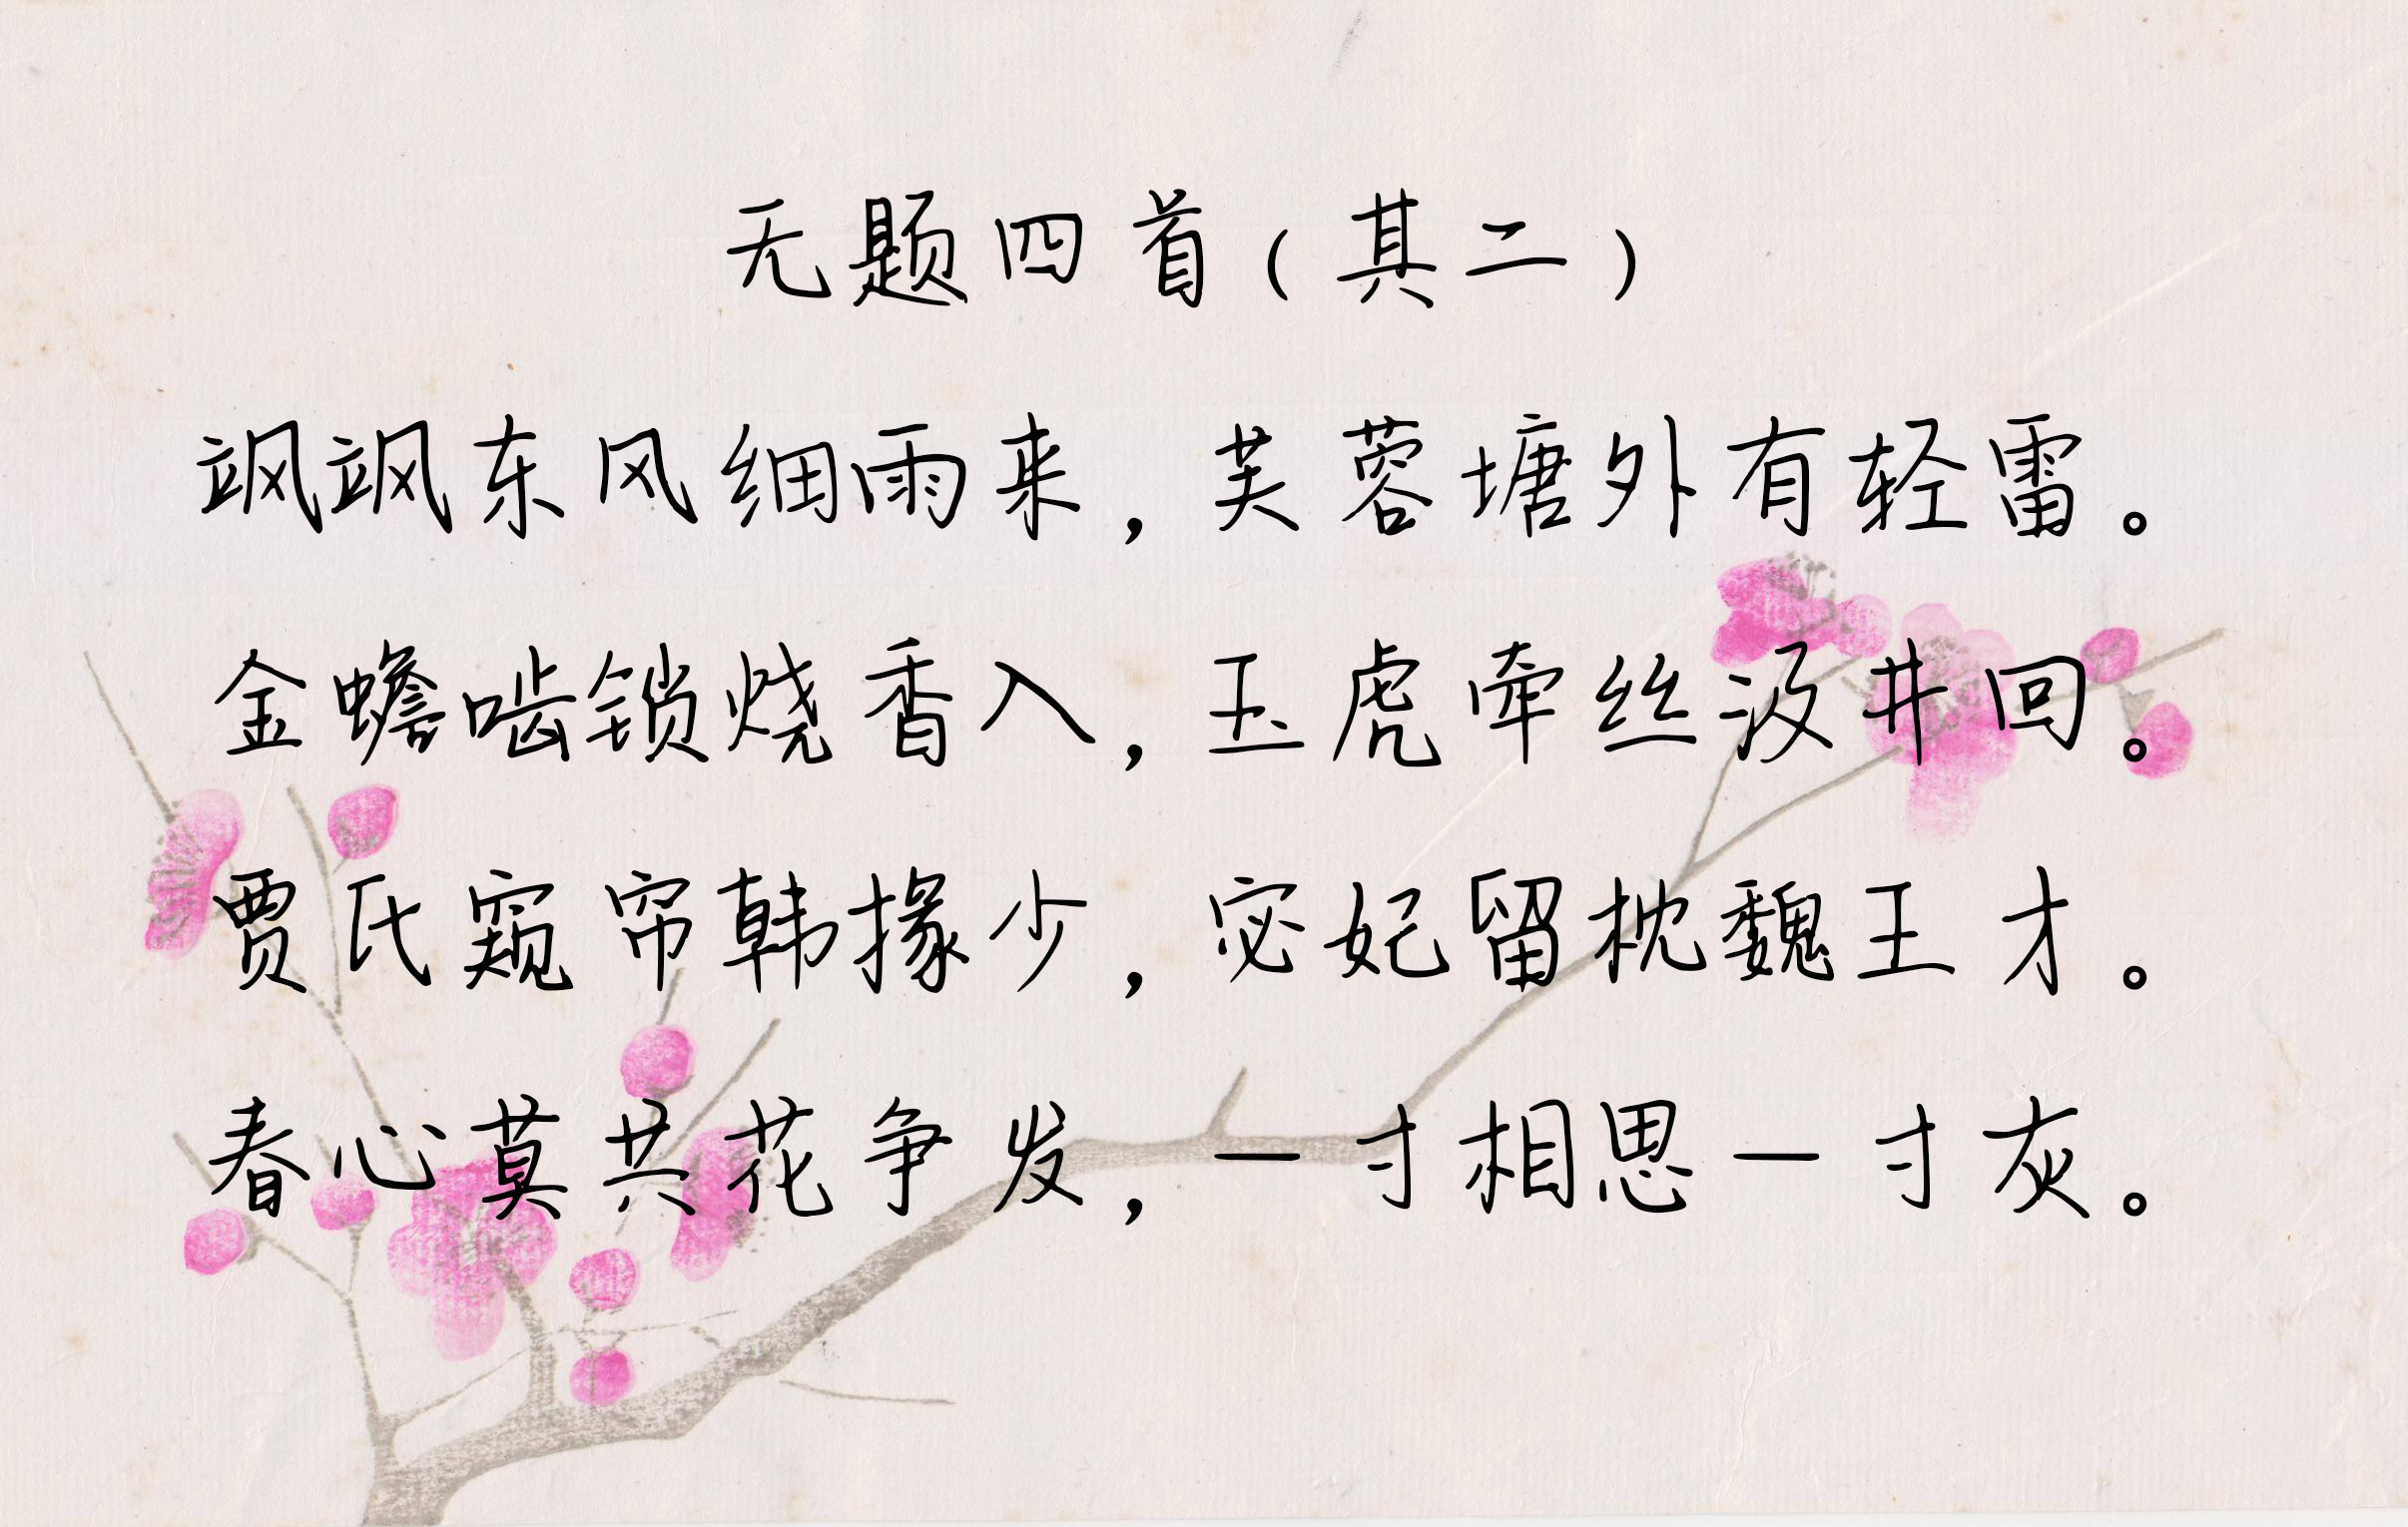 无题四首(其二)
飒飒东风细雨来,芙蓉塘外有轻雷。
金蟾啮锁烧香入,玉虎牵丝汲井回。
贾氏窥帘韩掾少,宓妃留枕魏王才。
春心莫共花争发,一寸相思一寸灰。